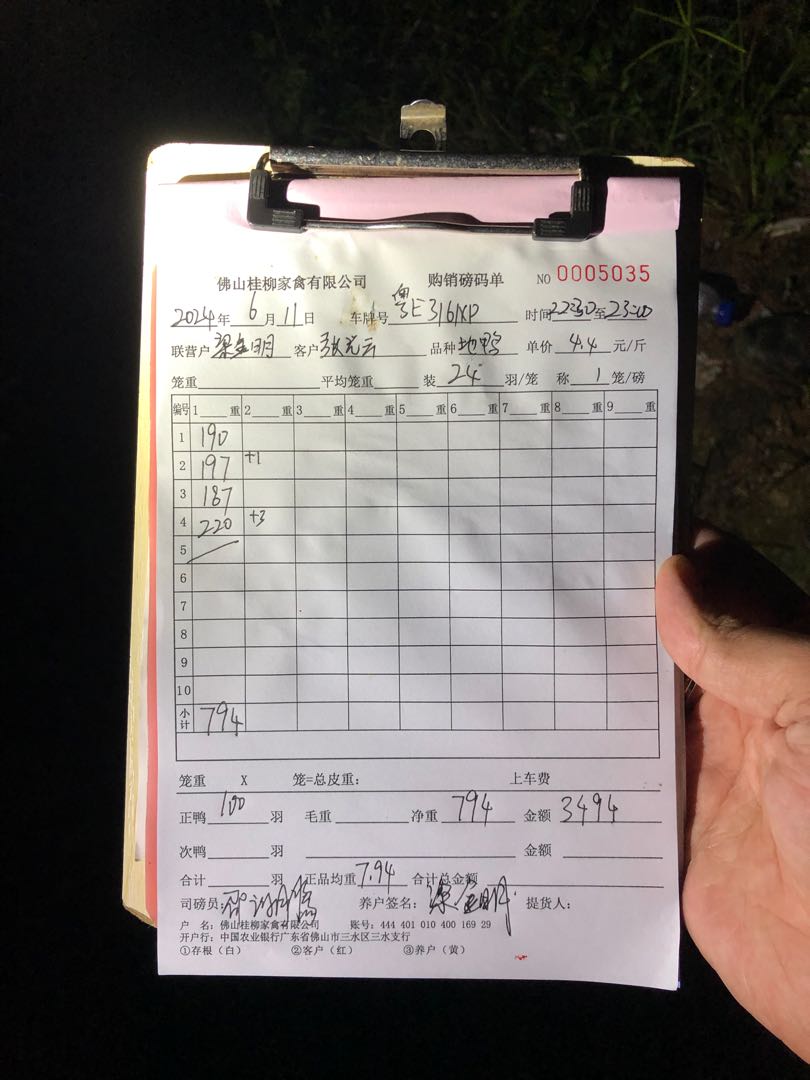 佛山桂柳家禽有限公司 购销磅码单 NO 0005035
2024年 6月 11日 车牌号 粤E316NP 时间 22:30至23:00
联营户 梁金明 客户 张光云 品种 地鸭 单价 4.4 元/斤
笼重 平均笼重 装 24 羽/笼 称 1 笼/磅
编号 1 重 2 重 3 重 4 重 5 重 6 重 7 重 8 重 9 重
1 190
2 197 +1
3 187
4 220 +3
5
6
7
8
9
10
小计 794
笼重 X 笼=总皮重: 上车费
正鸭 100 羽 毛重 净重 794 金额 3494
次鸭 羽 金额
合计 羽 正品均重 7.94 合计总金额
司磅员: 养户签名: 梁金明 提货人:
户 名: 佛山桂柳家禽有限公司 账号: 444 401 010 400 169 29
开户行: 中国农业银行广东省佛山市三水区三水支行
①存根(白) ②客户(红) ③养户(黄)